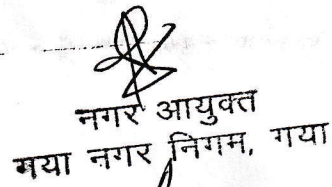 नगर आयुक्त
गया नगर निगम, गया